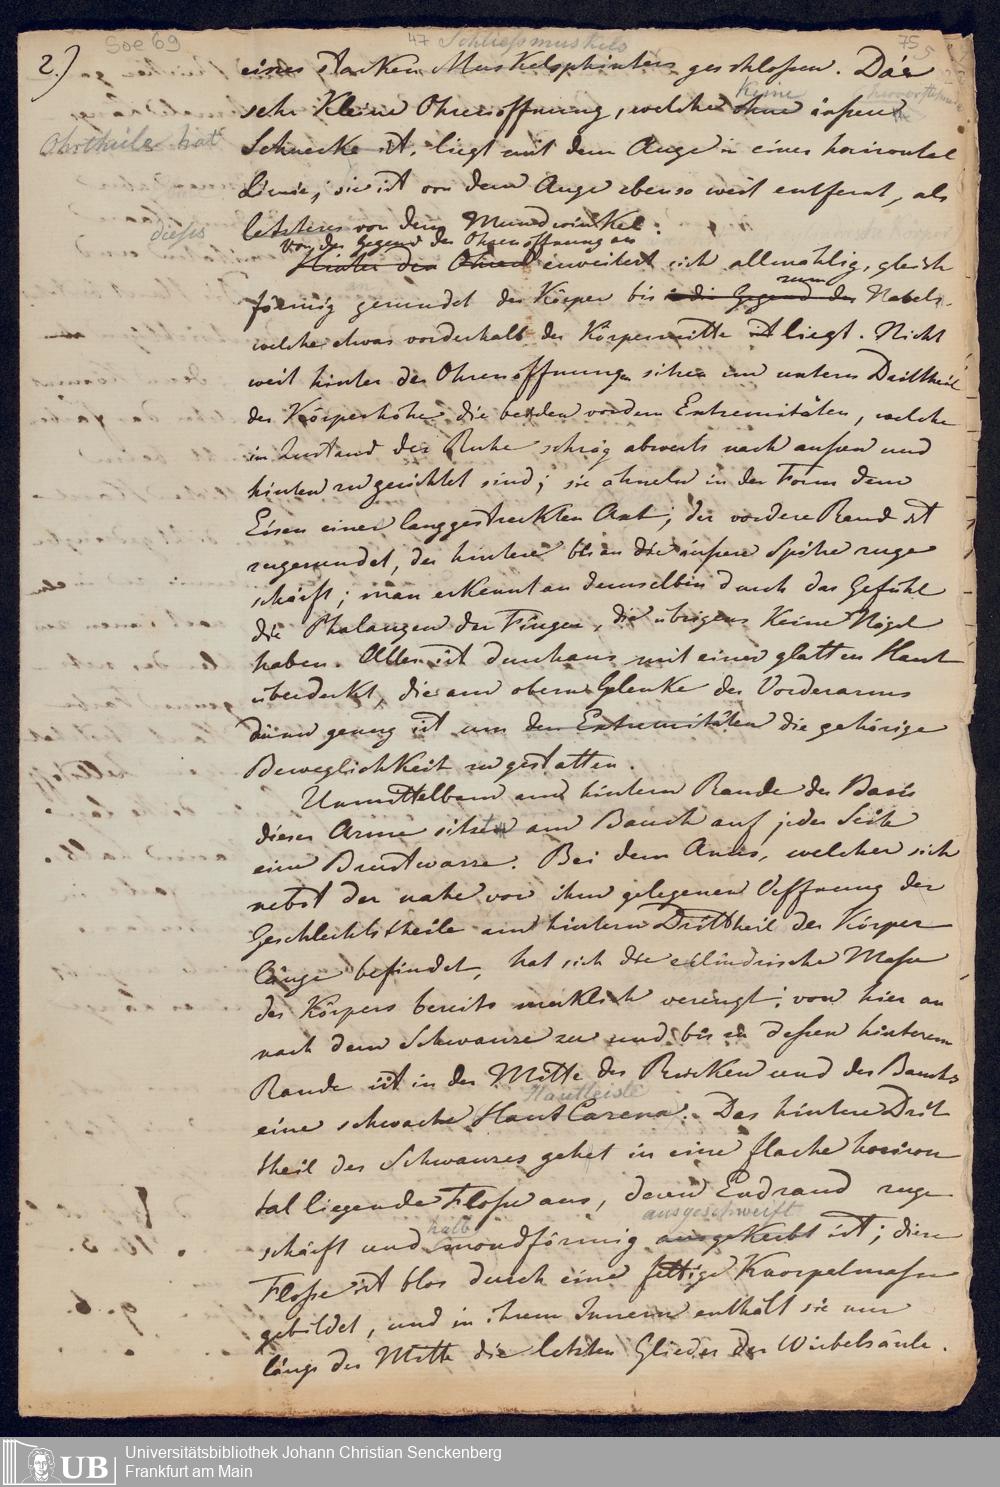 Soe 69
47
75
2.)
Schließmuskels
eines starken Muskelsphinters geschloßen. Die
keine hervorstehende
sehr kleine Ohrenöffnung, welche ohne äußere
Ohrtheile hat
Schnecke ist, liegt mit dem Auge in einer horizontal
Linie; sie ist von dem Auge ebenso weit entfernt, als
dieses
letzteres von dem Mundwinkel.
Von der Gegend der Ohrenöffnung an
Hinter den Ohren erweitert sich allmahlig, gleich
zum
förmig gerundet der Körper bis in die Gegend des Nabels,
welcher etwas vorderhalb der Körpermitte ist liegt. Nicht
weit hinter der Ohrenöffnung sitzen im untern Drittheil
der Körperhöhe die beiden vordern Extremitäten, welche
im Zustand der Ruhe schräg abwerts nach außen und
hinten zu gerichtet sind; sie ähneln in der Form dem
Eisen einer langgestreckten Axt; der vordere Rand ist
zugerundet, der hintere bis an die äußere Spitze zuge
schärft; man erkennt an demselben durch das Gefühl
die Phalangen der Finger, die übrigens keine Nägel
haben. Alles ist durchaus mit einer glatten Haut
überdeckt, die am obern Gelenke des Vorderarms
dünn genug ist um den Extremitäten die gehörige
Beweglichkeit zu gestatten.
Unmittelbar am hintern Rande der Basis
dieser Arme sitzt am Bauch auf jeder Seite
eine Brustwarze. Bei dem Anus, welcher sich
nebst der nahe vor ihm gelegenen Oeffnung der
Geschlechtstheile am hintern Drittheil der Körper
länge befindet, hat sich die cylindrische Masse
des Körpers bereits merklich verengt; von hier an
nach dem Schwanze zu und bis zu deßen hinterem
Rande ist in der Mitte des Rückens und des Bauchs
Hautleiste
eine schwache Haut Carena. Das hintere Drit
theil des Schwanzes gehet in eine flache horizon
tal liegende Floße aus, deren Endrand zuge
halb ausgeschweift
schärft und mondförmig ausgekerbt ist; diese
Floße ist blos durch eine fettige Knorpelmaße
gebildet, und in ihrem Innern enthält sie nur
längs der Mitte die letzten Glieder der Wirbelsäule.
UB
Universitätsbibliothek Johann Christian Senckenberg
Frankfurt am Main